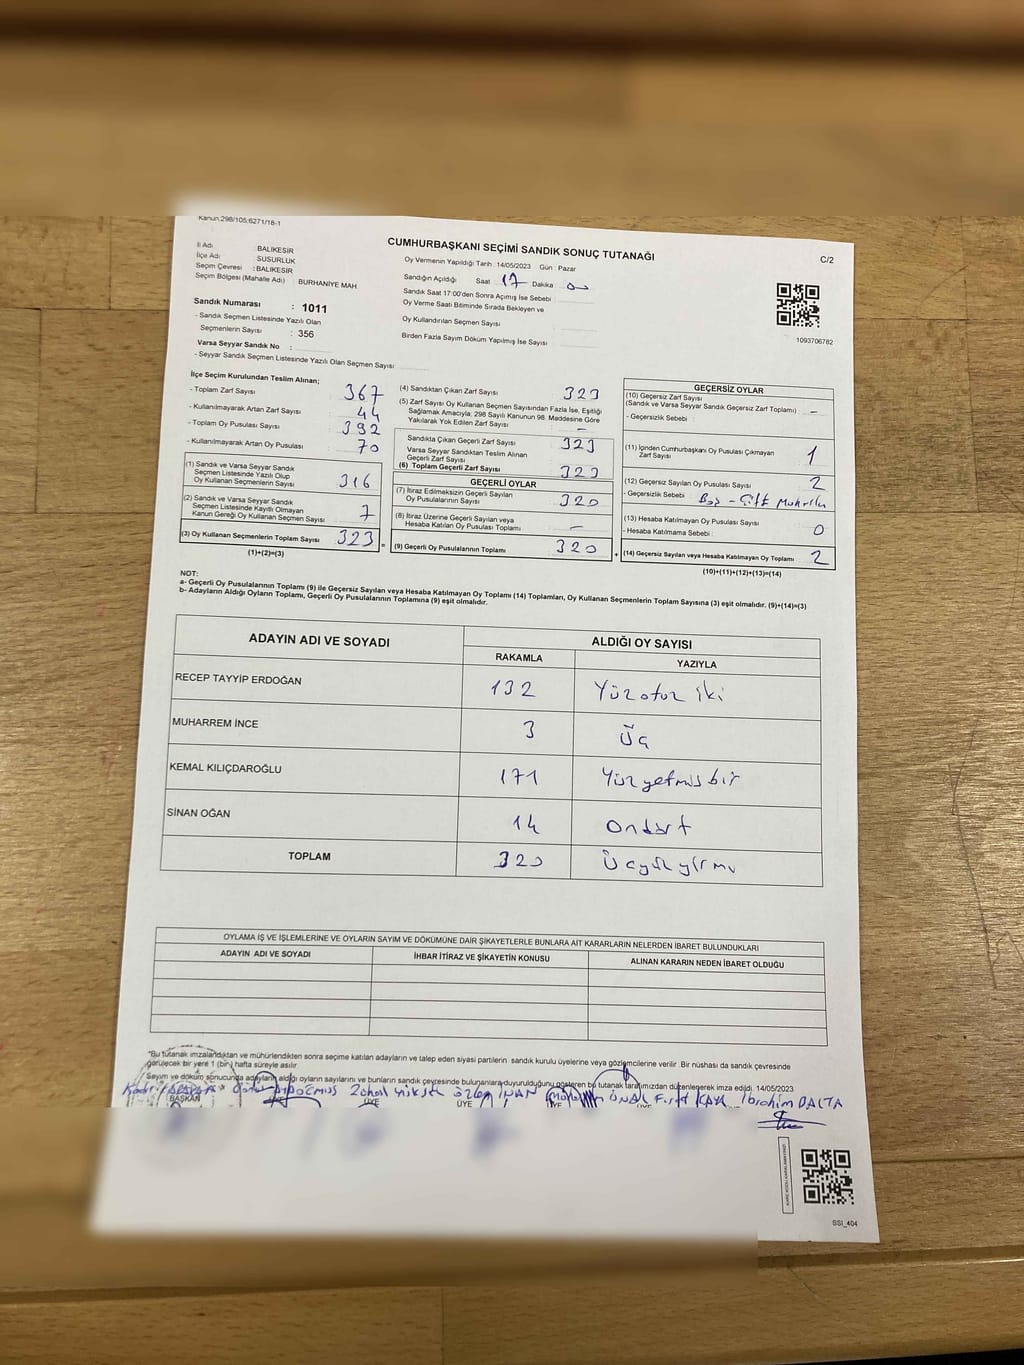 Kanun:298/105;6271/18-1
CUMHURBAŞKANI SEÇİMİ SANDIK SONUÇ TUTANAĞI
C/2
İl Adı BALIKESİR
İlçe Adı SUSURLUK
Seçim Çevresi : BALIKESİR
Seçim Bölgesi (Mahalle Adı) : BURHANİYE MAH.
Sandık Numarası : 1011
- Sandık Seçmen Listesinde Yazılı Olan
Seçmenlerin Sayısı : 356
Varsa Seyyar Sandık No :
- Seyyar Sandık Seçmen Listesinde Yazılı Olan Seçmen Sayısı :
Oy Vermenin Yapıldığı Tarih : 14/05/2023 Gün : Pazar
Sandığın Açıldığı Saat 17 Dakika 00
Sandık Saat 17:00'den Sonra Açımış İse Sebebi
Oy Verme Saati Bitiminde Sırada Bekleyen ve
Oy Kullandırılan Seçmen Sayısı :
Birden Fazla Sayım Döküm Yapılmış İse Sayısı :
1093706782
İlçe Seçim Kurulundan Teslim Alınan;
- Toplam Zarf Sayısı : 367
- Kullanılmayarak Artan Zarf Sayısı : 44
- Toplam Oy Pusulası Sayısı : 392
- Kullanılmayarak Artan Oy Pusulası : 70
(1) Sandık ve Varsa Seyyar Sandık
Seçmen Listesinde Yazılı Olup
Oy Kullanan Seçmenlerin Sayısı : 316
(2) Sandık ve Varsa Seyyar Sandık
Seçmen Listesinde Kayıtlı Olmayan
Kanun Gereği Oy Kullanan Seçmen Sayısı : 7
(3) Oy Kullanan Seçmenlerin Toplam Sayısı : 323
(1)+(2)=(3)
(4) Sandıktan Çıkan Zarf Sayısı : 323
(5) Zarf Sayısı Oy Kullanan Seçmen Sayısından Fazla İse, Eşitliği
Sağlamak Amacıyla; 298 Sayılı Kanunun 98. Maddesine Göre
Yakılarak Yok Edilen Zarf Sayısı : -
Sandıkta Çıkan Geçerli Zarf Sayısı : 323
Varsa Seyyar Sandıktan Teslim Alınan
Geçerli Zarf Sayısı :
(6) Toplam Geçerli Zarf Sayısı : 323
GEÇERLİ OYLAR
(7) İtiraz Edilmeksizin Geçerli Sayılan
Oy Pusulalarının Sayısı : 320
(8) İtiraz Üzerine Geçerli Sayılan veya
Hesaba Katılan Oy Pusulası Toplamı : -
(9) Geçerli Oy Pusulalarının Toplamı : 320
GEÇERSİZ OYLAR
(10) Geçersiz Zarf Sayısı
(Sandık ve Varsa Seyyar Sandık Geçersiz Zarf Toplamı) : -
- Geçersizlik Sebebi :
(11) İçinden Cumhurbaşkanı Oy Pusulası Çıkmayan
Zarf Sayısı : 1
(12) Geçersiz Sayılan Oy Pusulası Sayısı : 2
- Geçersizlik Sebebi : Boş - Çift
(13) Hesaba Katılmayan Oy Pusulası Sayısı : 0
- Hesaba Katılmama Sebebi :
(14) Geçersiz Sayılan veya Hesaba Katılmayan Oy Toplamı : 2
(10)+(11)+(12)+(13)=(14)
NOT:
a- Geçerli Oy Pusulalarının Toplamı (9) ile Geçersiz Sayılan veya Hesaba Katılmayan Oy Toplamı (14) Toplamları, Oy Kullanan Seçmenlerin Toplam Sayısına (3) eşit olmalıdır. (9)+(14)=(3)
b- Adayların Aldığı Oyların Toplamı, Geçerli Oy Pusulalarının Toplamına (9) eşit olmalıdır.
ADAYIN ADI VE SOYADI ALDIĞI OY SAYISI
RAKAMLA YAZIYLA
RECEP TAYYİP ERDOĞAN 132 Yüzotuz iki
MUHARREM İNCE 3 Üç
KEMAL KILIÇDAROĞLU 171 Yüzyetmişbir
SİNAN OĞAN 14 Ondört
TOPLAM 320 Üçyüzyirmi
OYLAMA İŞ VE İŞLEMLERİNE VE OYLARIN SAYIM VE DÖKÜMÜNE DAİR ŞİKAYETLERLE BUNLARA AİT KARARLARIN NELERDEN İBARET BULUNDUKLARI
ADAYIN ADI VE SOYADI İHBAR İTİRAZ VE ŞİKAYETİN KONUSU ALINAN KARARIN NEDEN İBARET OLDUĞU
*Bu tutanak imzalandıktan ve mühürlendikten sonra seçime katılan adayların ve talep eden siyasi partilerin sandık kurulu üyelerine veya gözlemcilerine verilir. Bir nüshası da sandık çevresinde
görülecek bir yere 1 (bir) hafta süreyle asılır.
Sayım ve döküm sonucunda adayların aldığı oyların sayılarını ve bunların sandık çevresinde bulunanlara duyurulduğunu gösteren bu tutanak tarafımızdan düzenlenerek imza edildi. 14/05/2023
Kadir Zuhal Yüksek Özlem İNAN ÜNAL Fırat KAYA İbrahim DALTA
BAŞKAN ÜYE ÜYE ÜYE ÜYE ÜYE
SSI_404